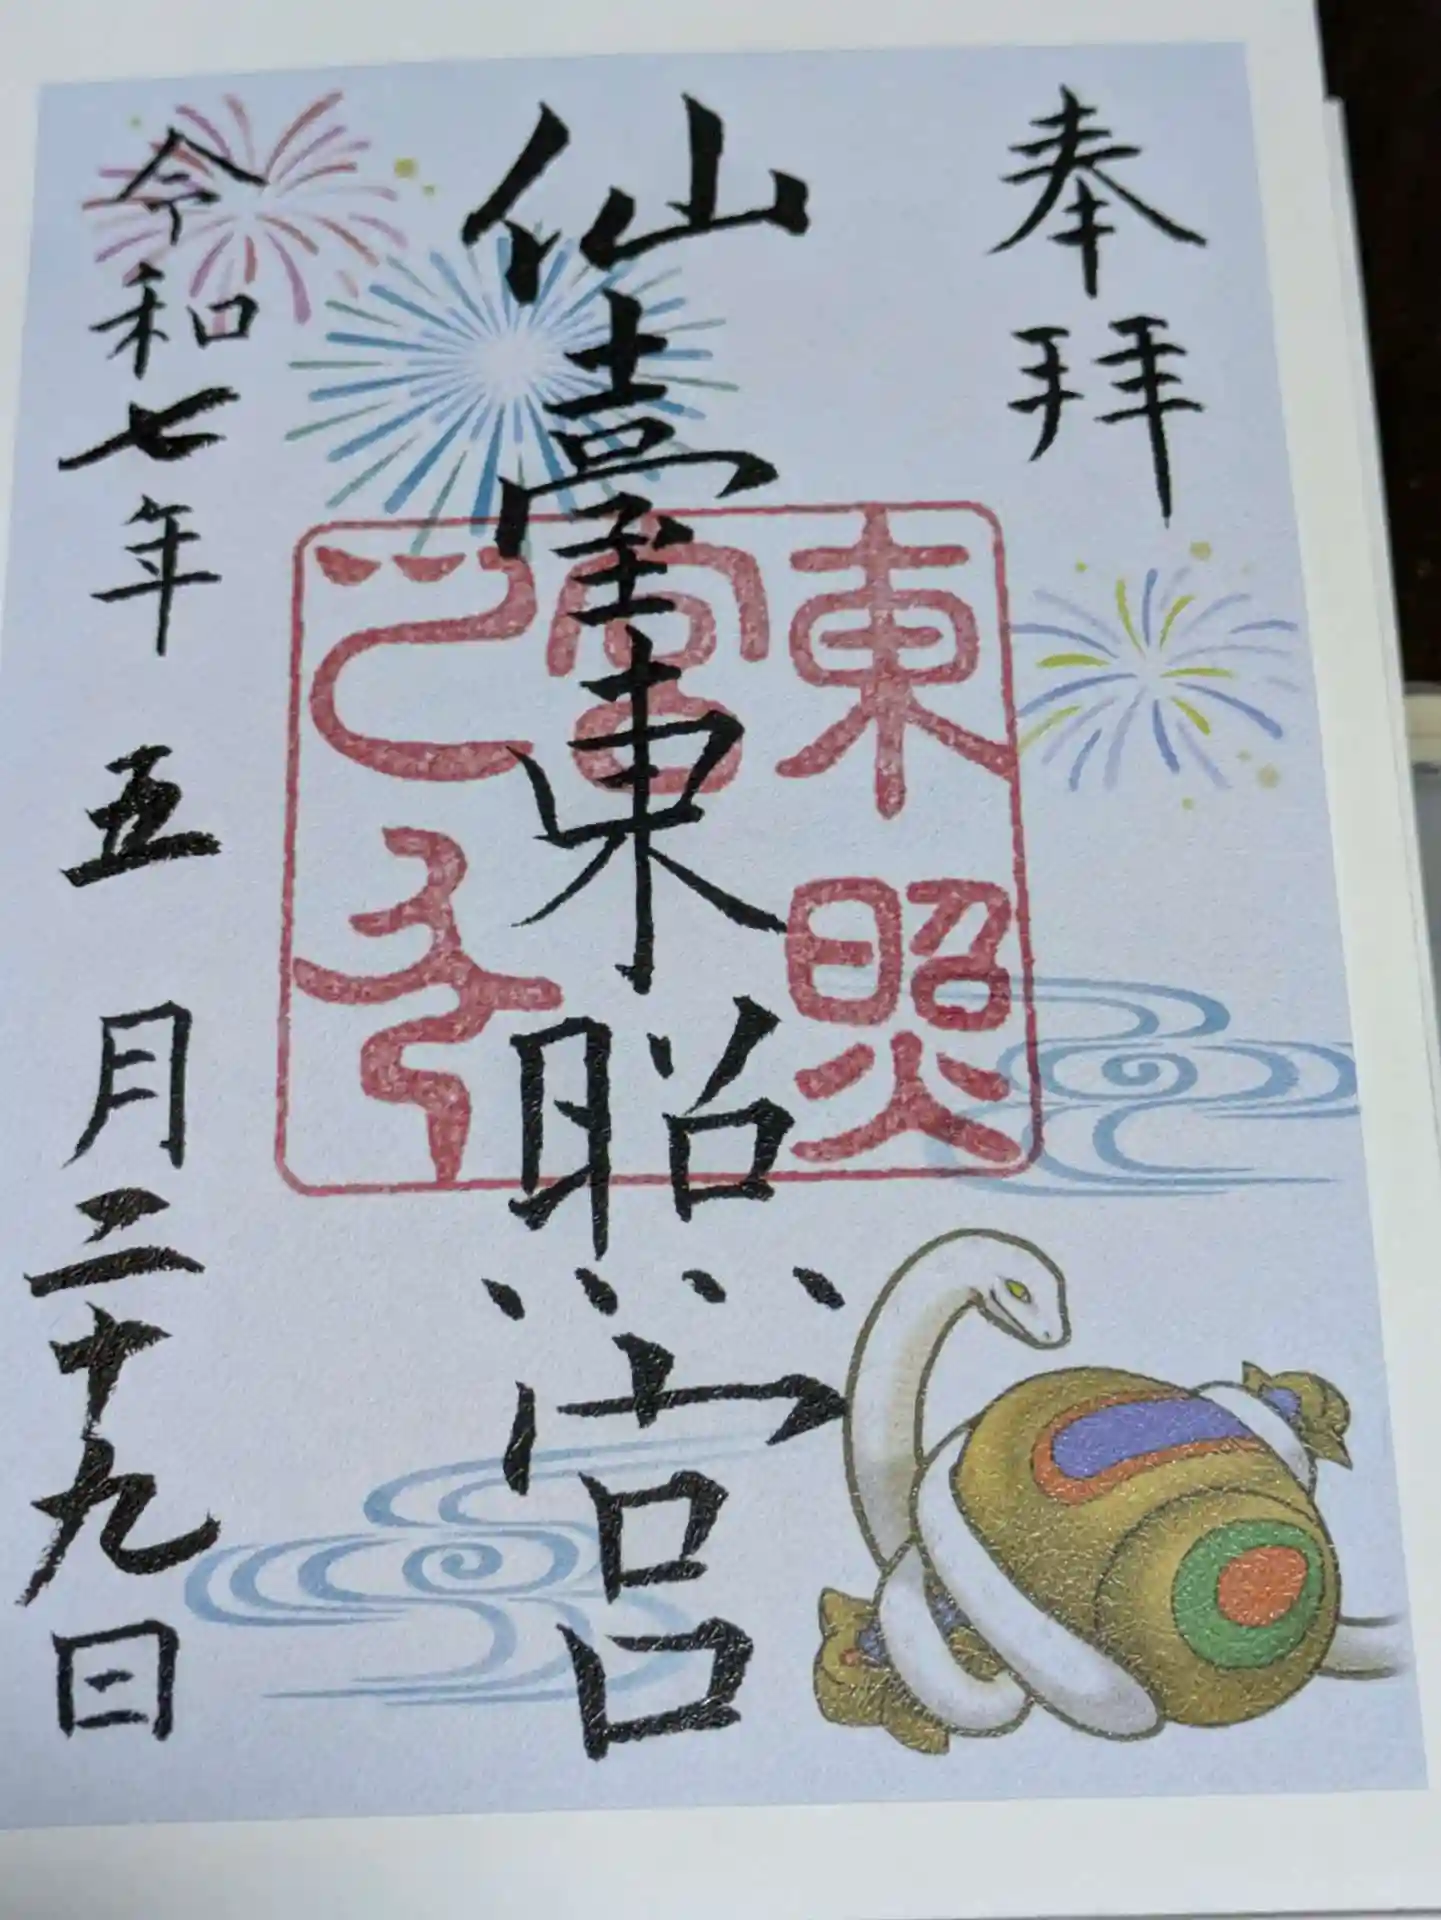 奉拝
仙臺東照宮
東照
宮
令和七年五月二十九日